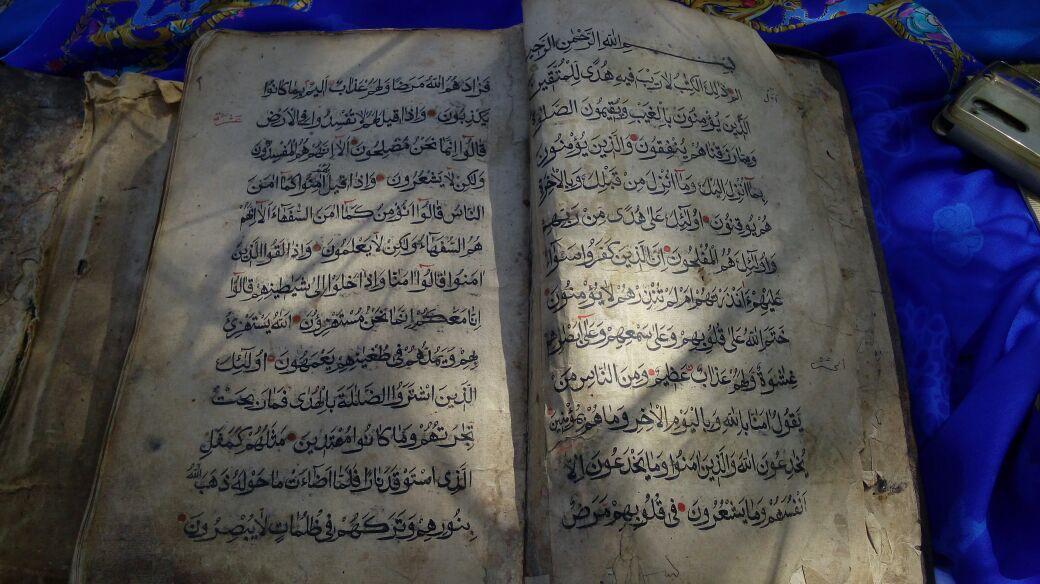 بسم الله الرحمن الرحيم
الم ذلك الكتب لا ريب فيه هدى للمتقين
الذين يؤمنون بالغيب ويقيمون الصلوة
ومما رزقناهم ينفقون والذين يؤمنون
بما انزل اليك وما انزل من قبلك وبالاخرة
هم يوقنون اولئك على هدى من ربهم
واولئك هم المفلحون ان الذين كفروا سواء
عليهم ءانذرتهم ام لم تنذرهم لا يؤمنون
ختم الله على قلوبهم وعلى سمعهم وعلى ابصارهم
غشوة ولهم عذاب عظيم ومن الناس من
يقول امنا بالله وباليوم الاخر وما هم بمؤمنين
يخدعون الله والذين امنوا وما يخدعون الا
انفسهم وما يشعرون في قلوبهم مرض
فزادهم الله مرضا ولهم عذاب اليم بما كانوا
يكذبون واذا قيل لهم لا تفسدوا في الارض
قالوا انما نحن مصلحون الا انهم هم المفسدون
ولكن لا يشعرون واذا قيل لهم امنوا كما امن
الناس قالوا انؤمن كما امن السفهاء الا انهم
هم السفهاء ولكن لا يعلمون واذا لقوا الذين
امنوا قالوا امنا واذا خلوا الى شيطينهم قالوا
انا معكم انما نحن مستهزؤن الله يستهزئ
بهم ويمدهم في طغينهم يعمهون اولئك
الذين اشتروا الضللة بالهدى فما ربحت
تجرتهم وما كانوا مهتدين مثلهم كمثل
الذي استوقد نارا فلما اضاءت ما حوله ذهب الله
بنورهم وتركهم في ظلمات لا يبصرون